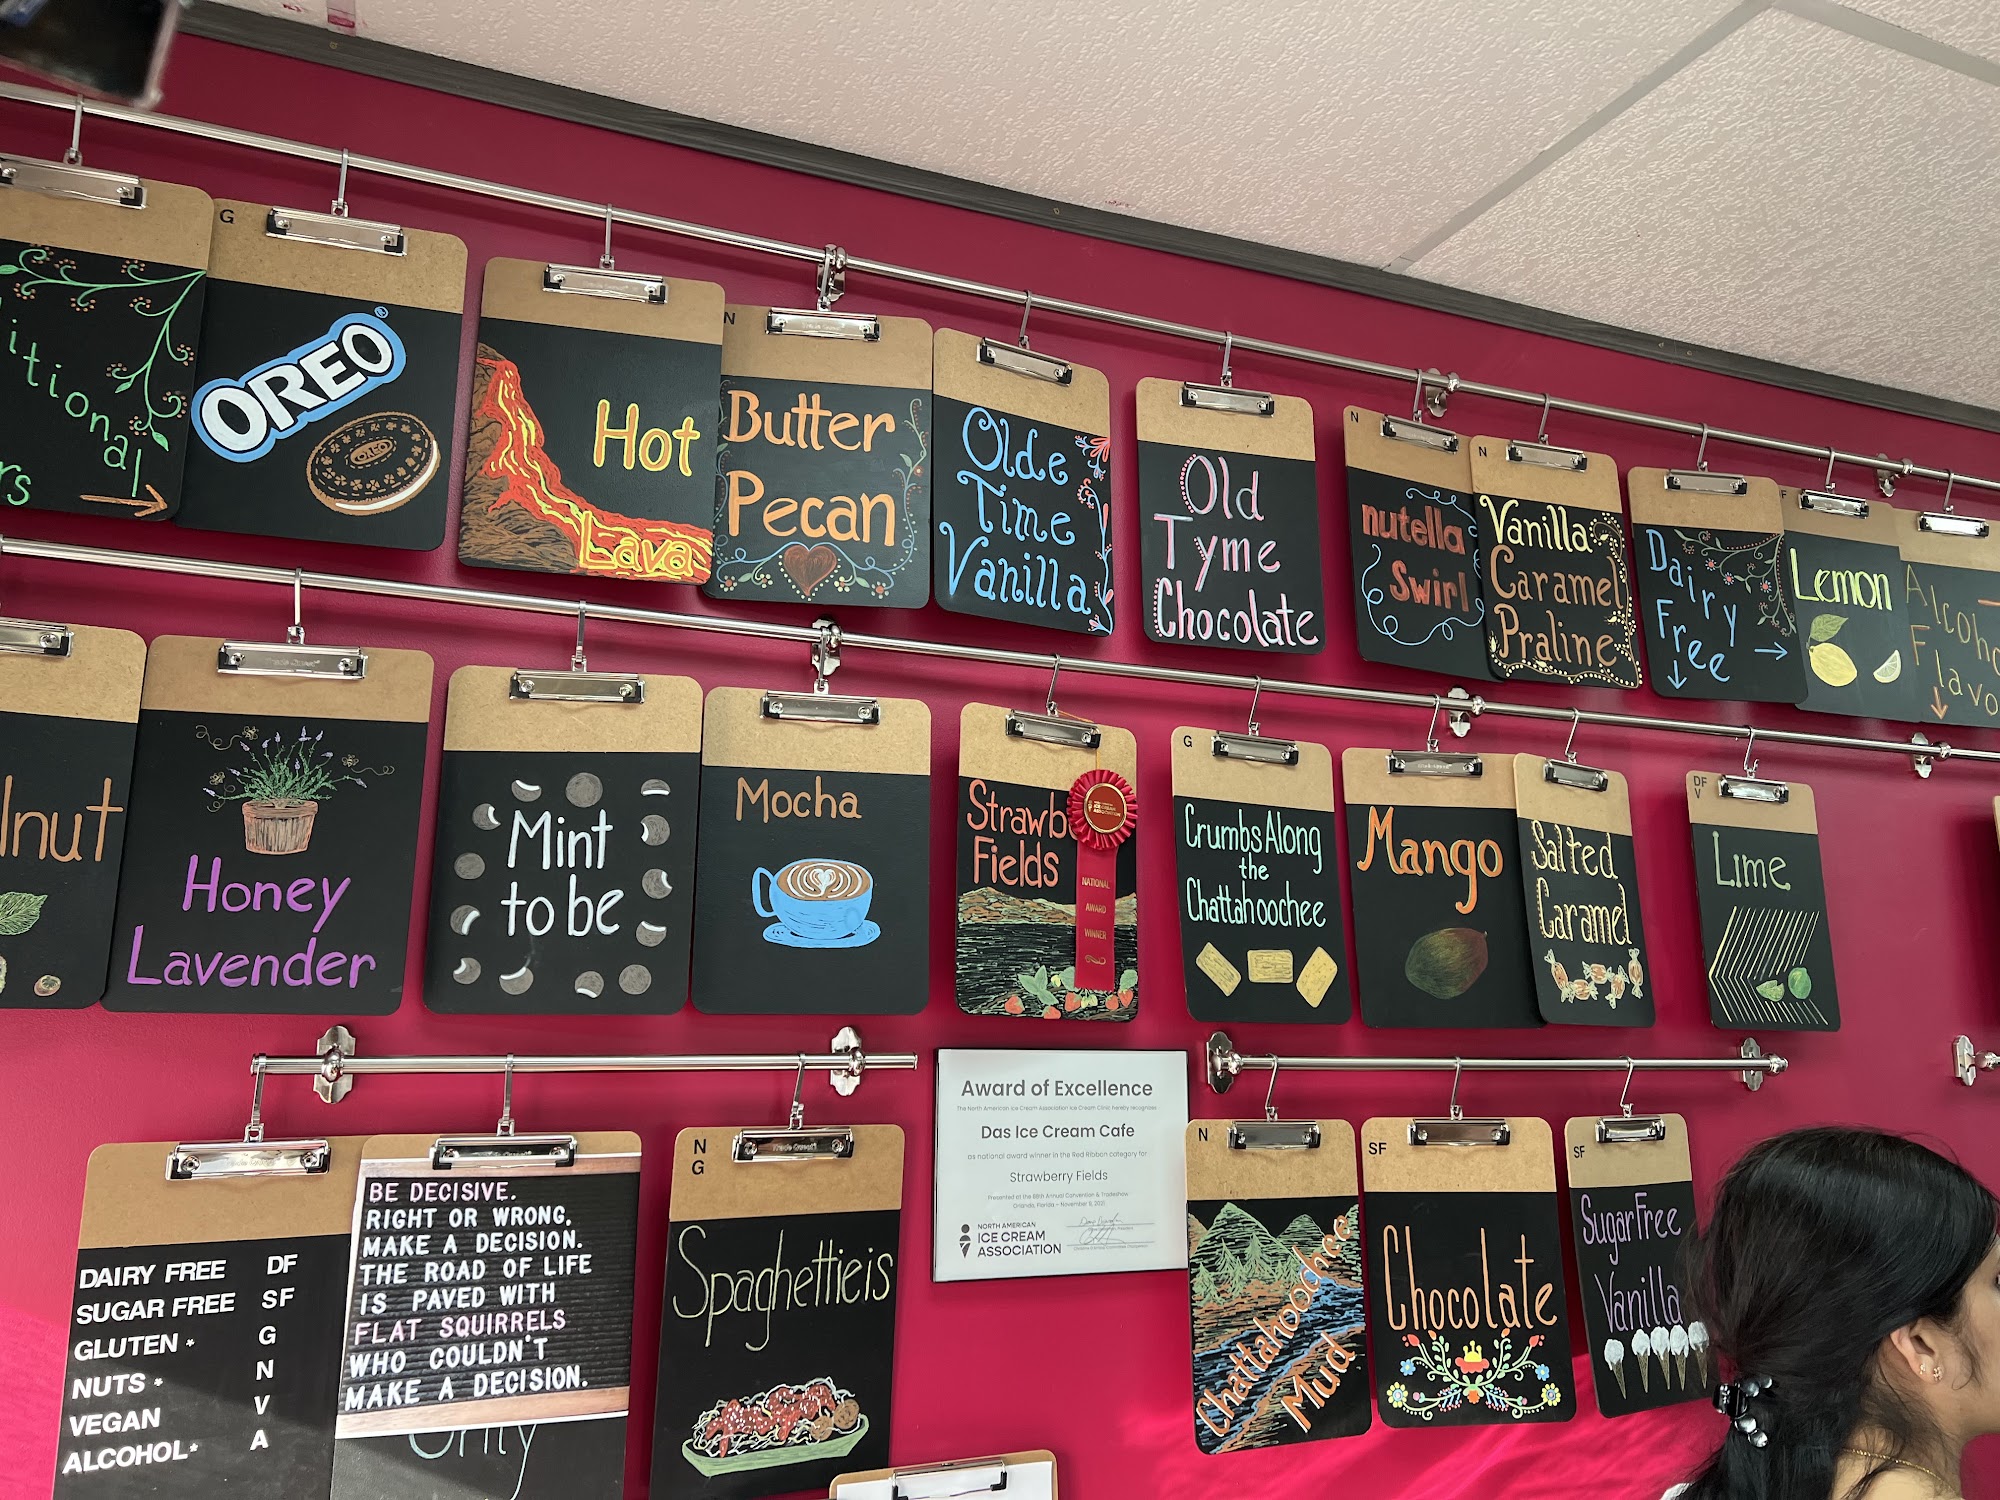 G
OREO
®
OREO
Hot
Lava
N
Butter
Pecan
Olde
Time
Vanilla
Old
Tyme
Chocolate
N
nutella
Swirl
N
Vanilla
Caramel
Praline
Dairy
Free
F
Lemon
itional
rs
Alcoho
Flavo
lnut
Honey
Lavender
Mint
to be
Mocha
Strawb
Fields
NATIONAL
AWARD
WINNER
G
Crumbs Along
the
Chattahoochee
Mango
Salted
Caramel
DF
V
Lime
DAIRY FREE DF
SUGAR FREE SF
GLUTEN * G
NUTS * N
VEGAN V
ALCOHOL* A
BE DECISIVE.
RIGHT OR WRONG,
MAKE A DECISION.
THE ROAD OF LIFE
IS PAVED WITH
FLAT SQUIRRELS
WHO COULDN'T
MAKE A DECISION.
Only
N
G
Spaghettieis
Award of Excellence
The North American Ice Cream Association Ice Cream Clinic hereby recognizes
Das Ice Cream Cafe
as national award winner in the Red Ribbon category for
Strawberry Fields
Presented at the 88th Annual Convention & Tradeshow
Orlando, Florida - November 9, 2021
NORTH AMERICAN
ICE CREAM
ASSOCIATION
N
Chattahoochee
Mud
SF
Chocolate
SF
Sugar Free
Vanilla